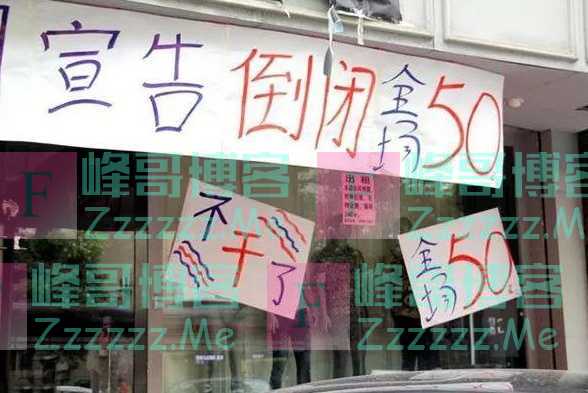 宣告倒闭全场50
出租
不干了
全场50
F
峰哥博客
Zzzzzz.Me
峰哥博客
Zzzzzz.Me
峰哥博客
Zzzzzz.Me
F
峰哥博客
Zzzzzz.Me